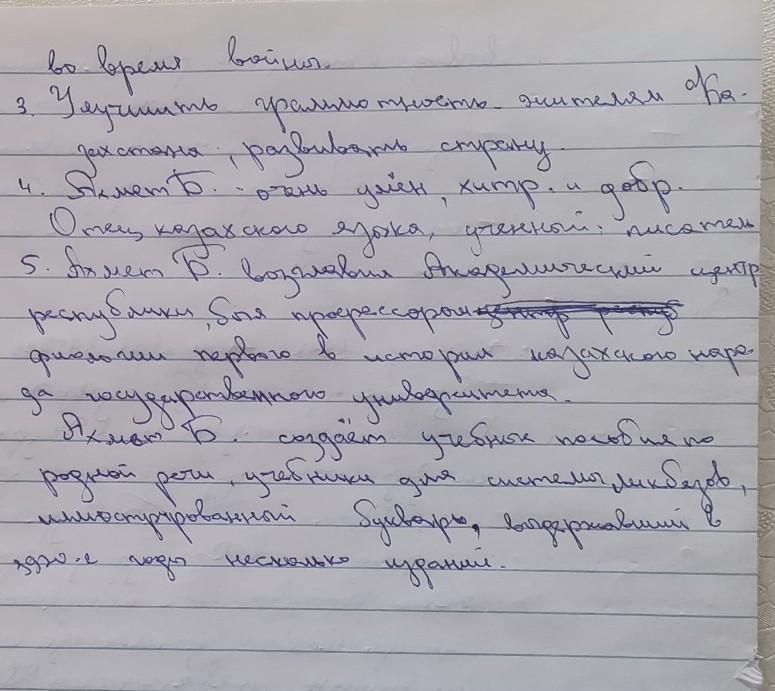 во время войны.
3. Улучшить граммотность жителям Ка-
захстана, развивать страну.
4. Ахмет Б. - очень умён, хитр. и добр.
Отец казахского языка, ученный, писатель
5. Ахмет Б. возглавил Академический центр
республики, был профессором
филологии первого в истории казахского наро-
да государственного университета.
Ахмет Б. создаёт учебник пособия по
родной речи, учебники для системы ликбезов,
иллюстрированный букварь, выдержавший в
1920-е годы несколько изданий.